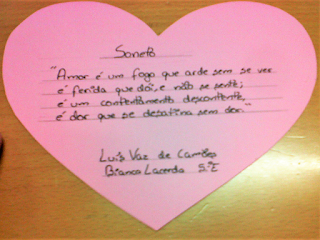 Soneto
"Amor é um fogo que arde sem se ver
é ferida que doi, e não se sente;
é um contentamento descontente,
é dor que se desatina sem doer."
Luís Vaz de Camões
Bianca Lacerda 5ºE